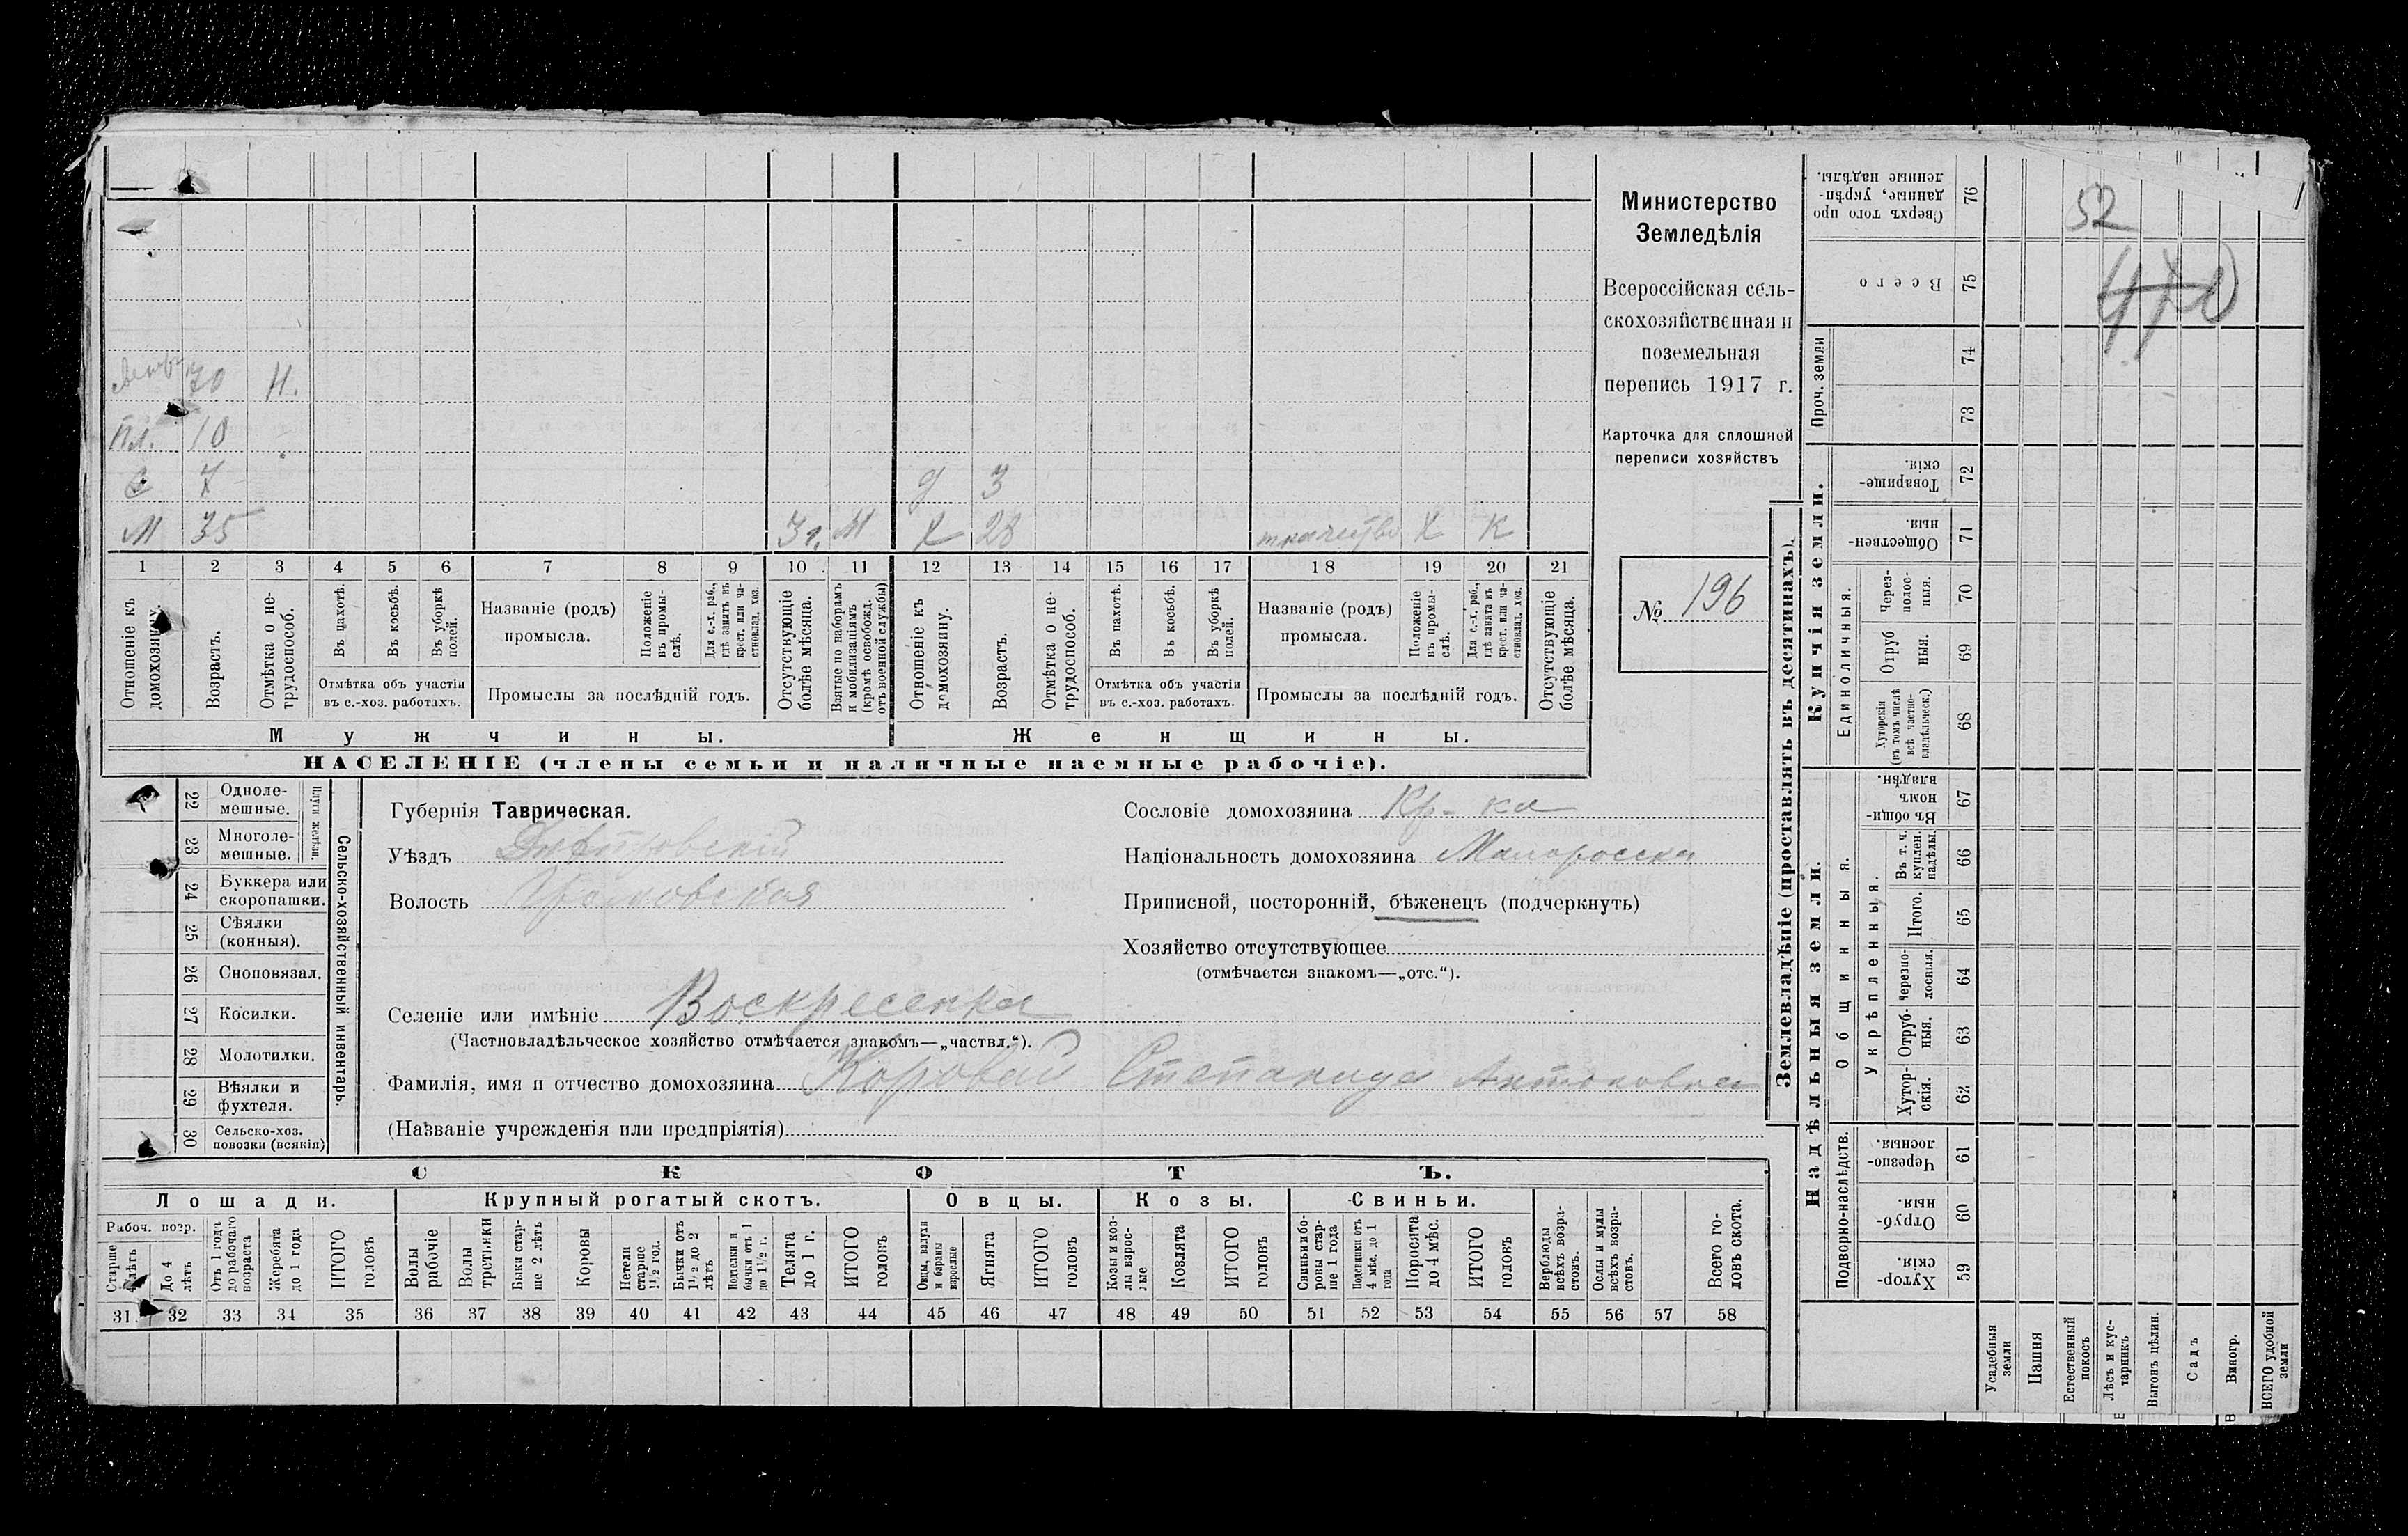 Министерство
Земледѣлія
Всероссійская сель-
скохозяйственная и
поземельная
перепись 1917 г.
Карточка для сплошной
переписи хозяйствъ
№ 196
52
30 Н.
Пл. 10
С 7 д 3
М 35 3 г. М Х 28 ткачество Х К
1 2 3 4 5 6 7 8 9 10 11 12 13 14 15 16 17 18 19 20 21
Отношеніе къ домохозяину.
Возрастъ.
Отмѣтка о не-трудоспособ.
Въ пахотѣ.
Въ косьбѣ.
Въ уборкѣ полей.
Отмѣтка объ участіи
въ с.-хоз. работахъ.
Названіе (родъ)
промысла.
Положеніе въ промы-слѣ.
Для с.-х. раб., гдѣ занятъ въ крест. или ча-стновлад. хоз.
Промыслы за послѣдній годъ.
Отсутствующіе болѣе мѣсяца.
Взятые по наборамъ и мобилизаціямъ (кромѣ освобожд. отъ военной службы)
Отношеніе къ домохозяину.
Возрастъ.
Отмѣтка о не-трудоспособ.
Въ пахотѣ.
Въ косьбѣ.
Въ уборкѣ полей.
Отмѣтка объ участіи
въ с.-хоз. работахъ.
Названіе (родъ)
промысла.
Положеніе въ промы-слѣ.
Для с.-х. раб., гдѣ занята въ крест. или ча-стновлад. хоз.
Промыслы за послѣдній годъ.
Отсутствующіе болѣе мѣсяца.
Мужчины.
Женщины.
НАСЕЛЕНІЕ (члены семьи и наличные наемные рабочіе).
22 Одноле-мешные.
23 Многоле-мешные.
Плуги желѣзн.
24 Буккера или скоропашки.
25 Сѣялки (конныя).
26 Сноповязал.
27 Косилки.
28 Молотилки.
29 Вѣялки и фухтеля.
30 Сельско-хоз. повозки (всякія)
Сельско-хозяйственный инвентарь.
Губернія Таврическая.
Уѣздъ Днѣпровскій
Волость
Сословіе домохозяина Кр-ка
Національность домохозяина Малоросска
Приписной, посторонній, бѣженецъ (подчеркнуть)
Хозяйство отсутствующее
(отмѣчается знакомъ—„отс.“).
Селеніе или имѣніе Воскресенка
(Частновладѣльческое хозяйство отмѣчается знакомъ—„частвл.“).
Фамилія, имя и отчество домохозяина Коровай Степанида Антоновна
(Названіе учрежденія или предпріятія)
СКОТЪ.
Лошади.
Крупный рогатый скотъ.
Овцы.
Козы.
Свиньи.
Рабоч. возр.
Старше 4 лѣтъ
До 4 лѣтъ
Отъ 1 годъ до рабочаго возраста
Жеребята до 1 года
ИТОГО головъ
Волы рабочіе
Волы третьяки
Быки стар-ше 2 лѣтъ
Коровы
Нетели старше 1½ год.
Бычки отъ 1½ до 2 лѣтъ
Подтелки и бычки отъ 1 до 1½ г.
Телята до 1 г.
ИТОГО головъ
Овцы, валухи и бараны взрослые
Ягнята
ИТОГО головъ
Козы и коз-лы взрос-лые
Козлята
ИТОГО головъ
Свиньи и бо-ровы стар-ше 1 года
Подсвинки отъ 4 мѣс. до 1 года
Поросята до 4 мѣс.
ИТОГО головъ
Верблюды всѣхъ возра-стовъ.
Ослы и мулы всѣхъ возра-стовъ.
Всего го-ловъ скота.
31 32 33 34 35 36 37 38 39 40 41 42 43 44 45 46 47 48 49 50 51 52 53 54 55 56 57 58
Землевладѣніе (проставлять въ десятинахъ).
Сверхъ того про-данные, укрѣп-ленные надѣлы. 76
Всего 75
Проч. земли
74
73
Купчія земли.
Товарище-скія. 72
Обществен-ныя. 71
Единоличныя.
Через-полос-ныя. 70
Отруб-ныя. 69
Хуторскія (въ томъ числѣ всѣ частно-владѣльческ.) 68
Надѣльныя земли.
Общинныя.
Въ общин-номъ владѣн. 67
Укрѣпленныя.
Въ т. ч. куплен. надѣлы. 66
Итого. 65
Черезпо-лосныя. 64
Отруб-ныя. 63
Хутор-скія. 62
Подворно-наслѣдств.
Черезпо-лосныя. 61
Отруб-ныя. 60
Хутор-скія. 59
Усадебныя земли
Пашня
Естественный покосъ
Лѣсъ и кус-тарникъ
Выгонъ цѣлин.
Садъ
Виногр.
ВСЕГО удобной земли